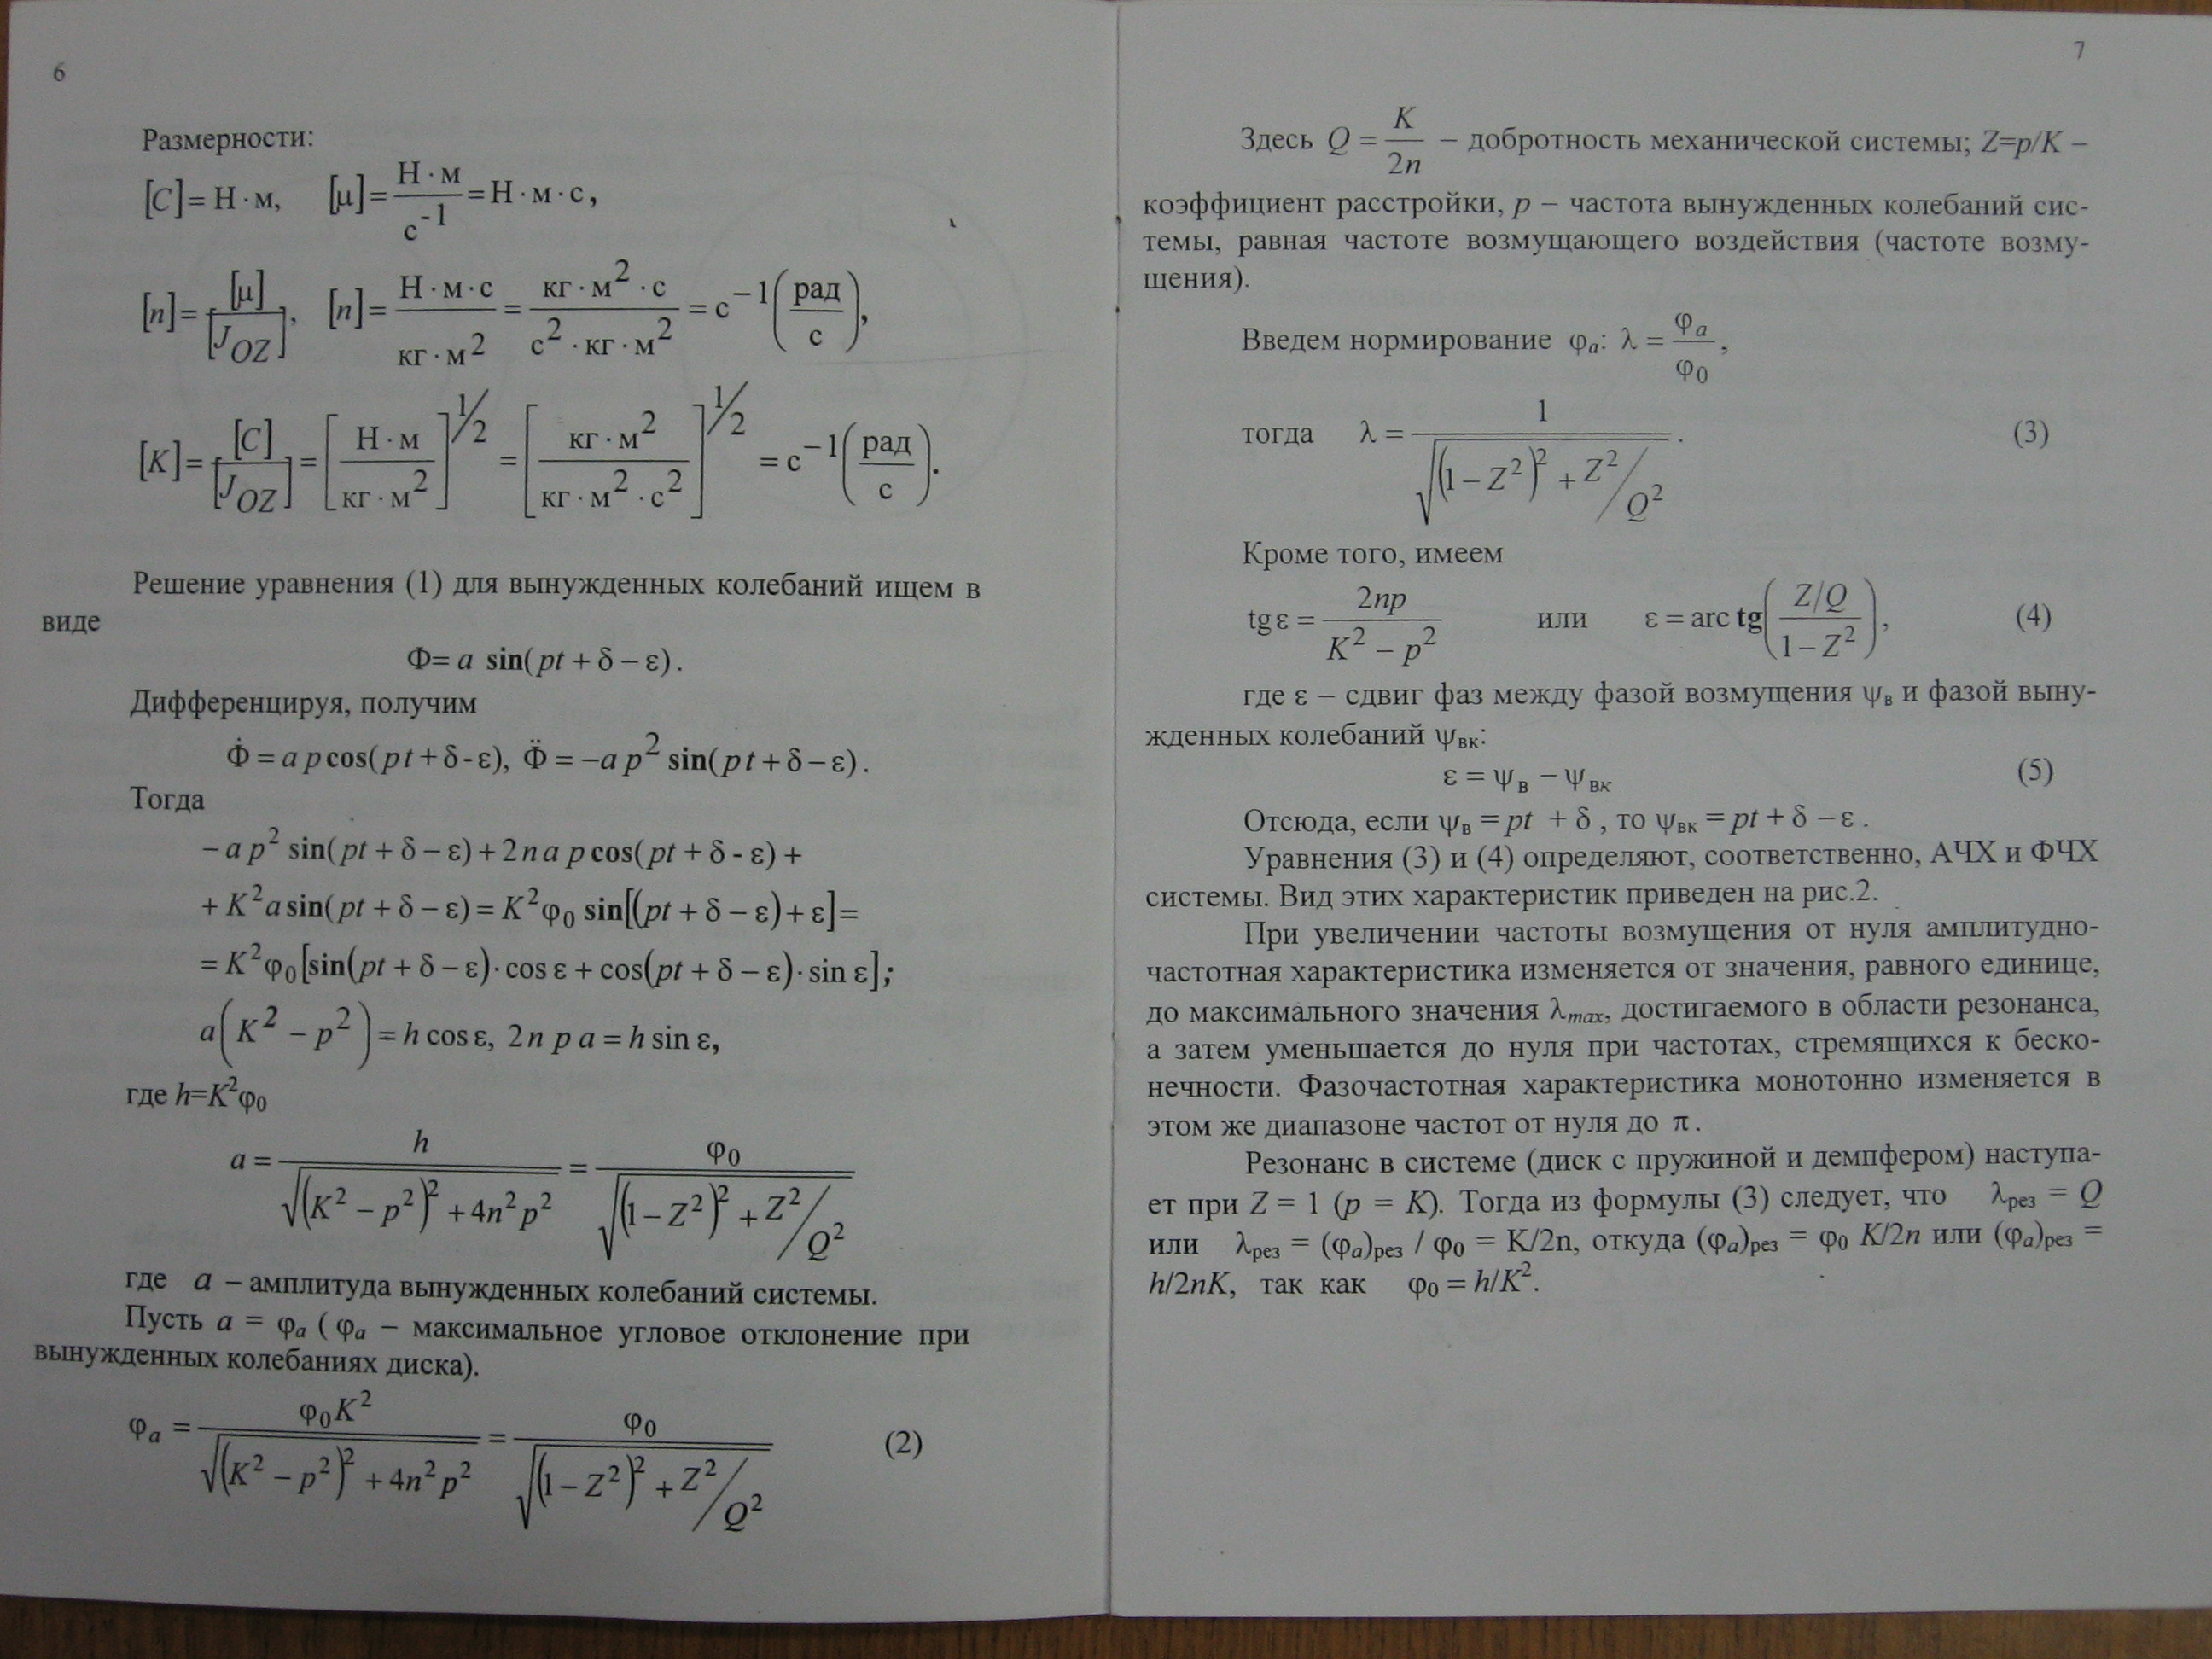 6
Размерности:
[C]= Н·м, [μ]= Н·м / с^-1 = Н·м·с,
[n]= [μ] / [J_OZ], [n]= Н·м·с / кг·м^2 = кг·м^2·с / с^2·кг·м^2 = с^−1 (рад / с),
[K]= [C] / [J_OZ] = [Н·м / кг·м^2]^1/2 = [кг·м^2 / кг·м^2·с^2]^1/2 = с^−1 (рад / с).
Решение уравнения (1) для вынужденных колебаний ищем в
виде
Φ= a sin(pt + δ − ε).
Дифференцируя, получим
Φ̇ = a p cos(pt + δ - ε), Φ̈ = −a p^2 sin(pt + δ − ε).
Тогда
− a p^2 sin(pt + δ − ε) + 2n a p cos(pt + δ - ε) +
+ K^2 a sin(pt + δ − ε) = K^2 φ_0 sin[(pt + δ − ε) + ε] =
= K^2 φ_0 [sin(pt + δ − ε)· cos ε + cos(pt + δ − ε)· sin ε];
a(K^2 − p^2) = h cos ε, 2n p a = h sin ε,
где h=K^2φ_0
a = h / √((K^2 − p^2)^2 + 4n^2p^2) = φ_0 / √((1 − Z^2)^2 + Z^2/Q^2)
где a – амплитуда вынужденных колебаний системы.
Пусть a = φ_a ( φ_a – максимальное угловое отклонение при
вынужденных колебаниях диска).
φ_a = φ_0K^2 / √((K^2 − p^2)^2 + 4n^2p^2) = φ_0 / √((1 − Z^2)^2 + Z^2/Q^2) (2)
7
Здесь Q = K / 2n – добротность механической системы; Z=p/K –
коэффициент расстройки, p – частота вынужденных колебаний сис-
темы, равная частоте возмущающего воздействия (частоте возму-
щения).
Введем нормирование φ_a: λ = φ_a / φ_0,
тогда λ = 1 / √((1 − Z^2)^2 + Z^2/Q^2). (3)
Кроме того, имеем
tg ε = 2np / K^2 − p^2 или ε = arc tg(Z/Q / 1 − Z^2), (4)
где ε – сдвиг фаз между фазой возмущения ψ_в и фазой выну-
жденных колебаний ψ_вк:
ε = ψ_в − ψ_вк (5)
Отсюда, если ψ_в = pt + δ , то ψ_вк = pt + δ − ε .
Уравнения (3) и (4) определяют, соответственно, АЧХ и ФЧХ
системы. Вид этих характеристик приведен на рис.2.
При увеличении частоты возмущения от нуля амплитудно-
частотная характеристика изменяется от значения, равного единице,
до максимального значения λ_max, достигаемого в области резонанса,
а затем уменьшается до нуля при частотах, стремящихся к беско-
нечности. Фазочастотная характеристика монотонно изменяется в
этом же диапазоне частот от нуля до π.
Резонанс в системе (диск с пружиной и демпфером) наступа-
ет при Z = 1 (p = K). Тогда из формулы (3) следует, что λ_рез = Q
или λ_рез = (φ_a)_рез / φ_0 = K/2n, откуда (φ_a)_рез = φ_0 K/2n или (φ_a)_рез =
h/2nK, так как φ_0 = h/K^2.